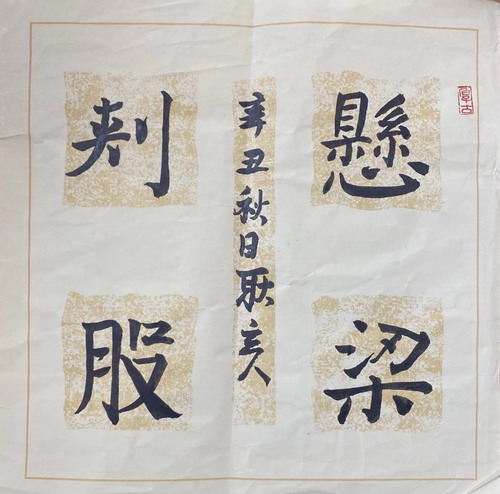 懸梁
刾股
辛丑秋日耿